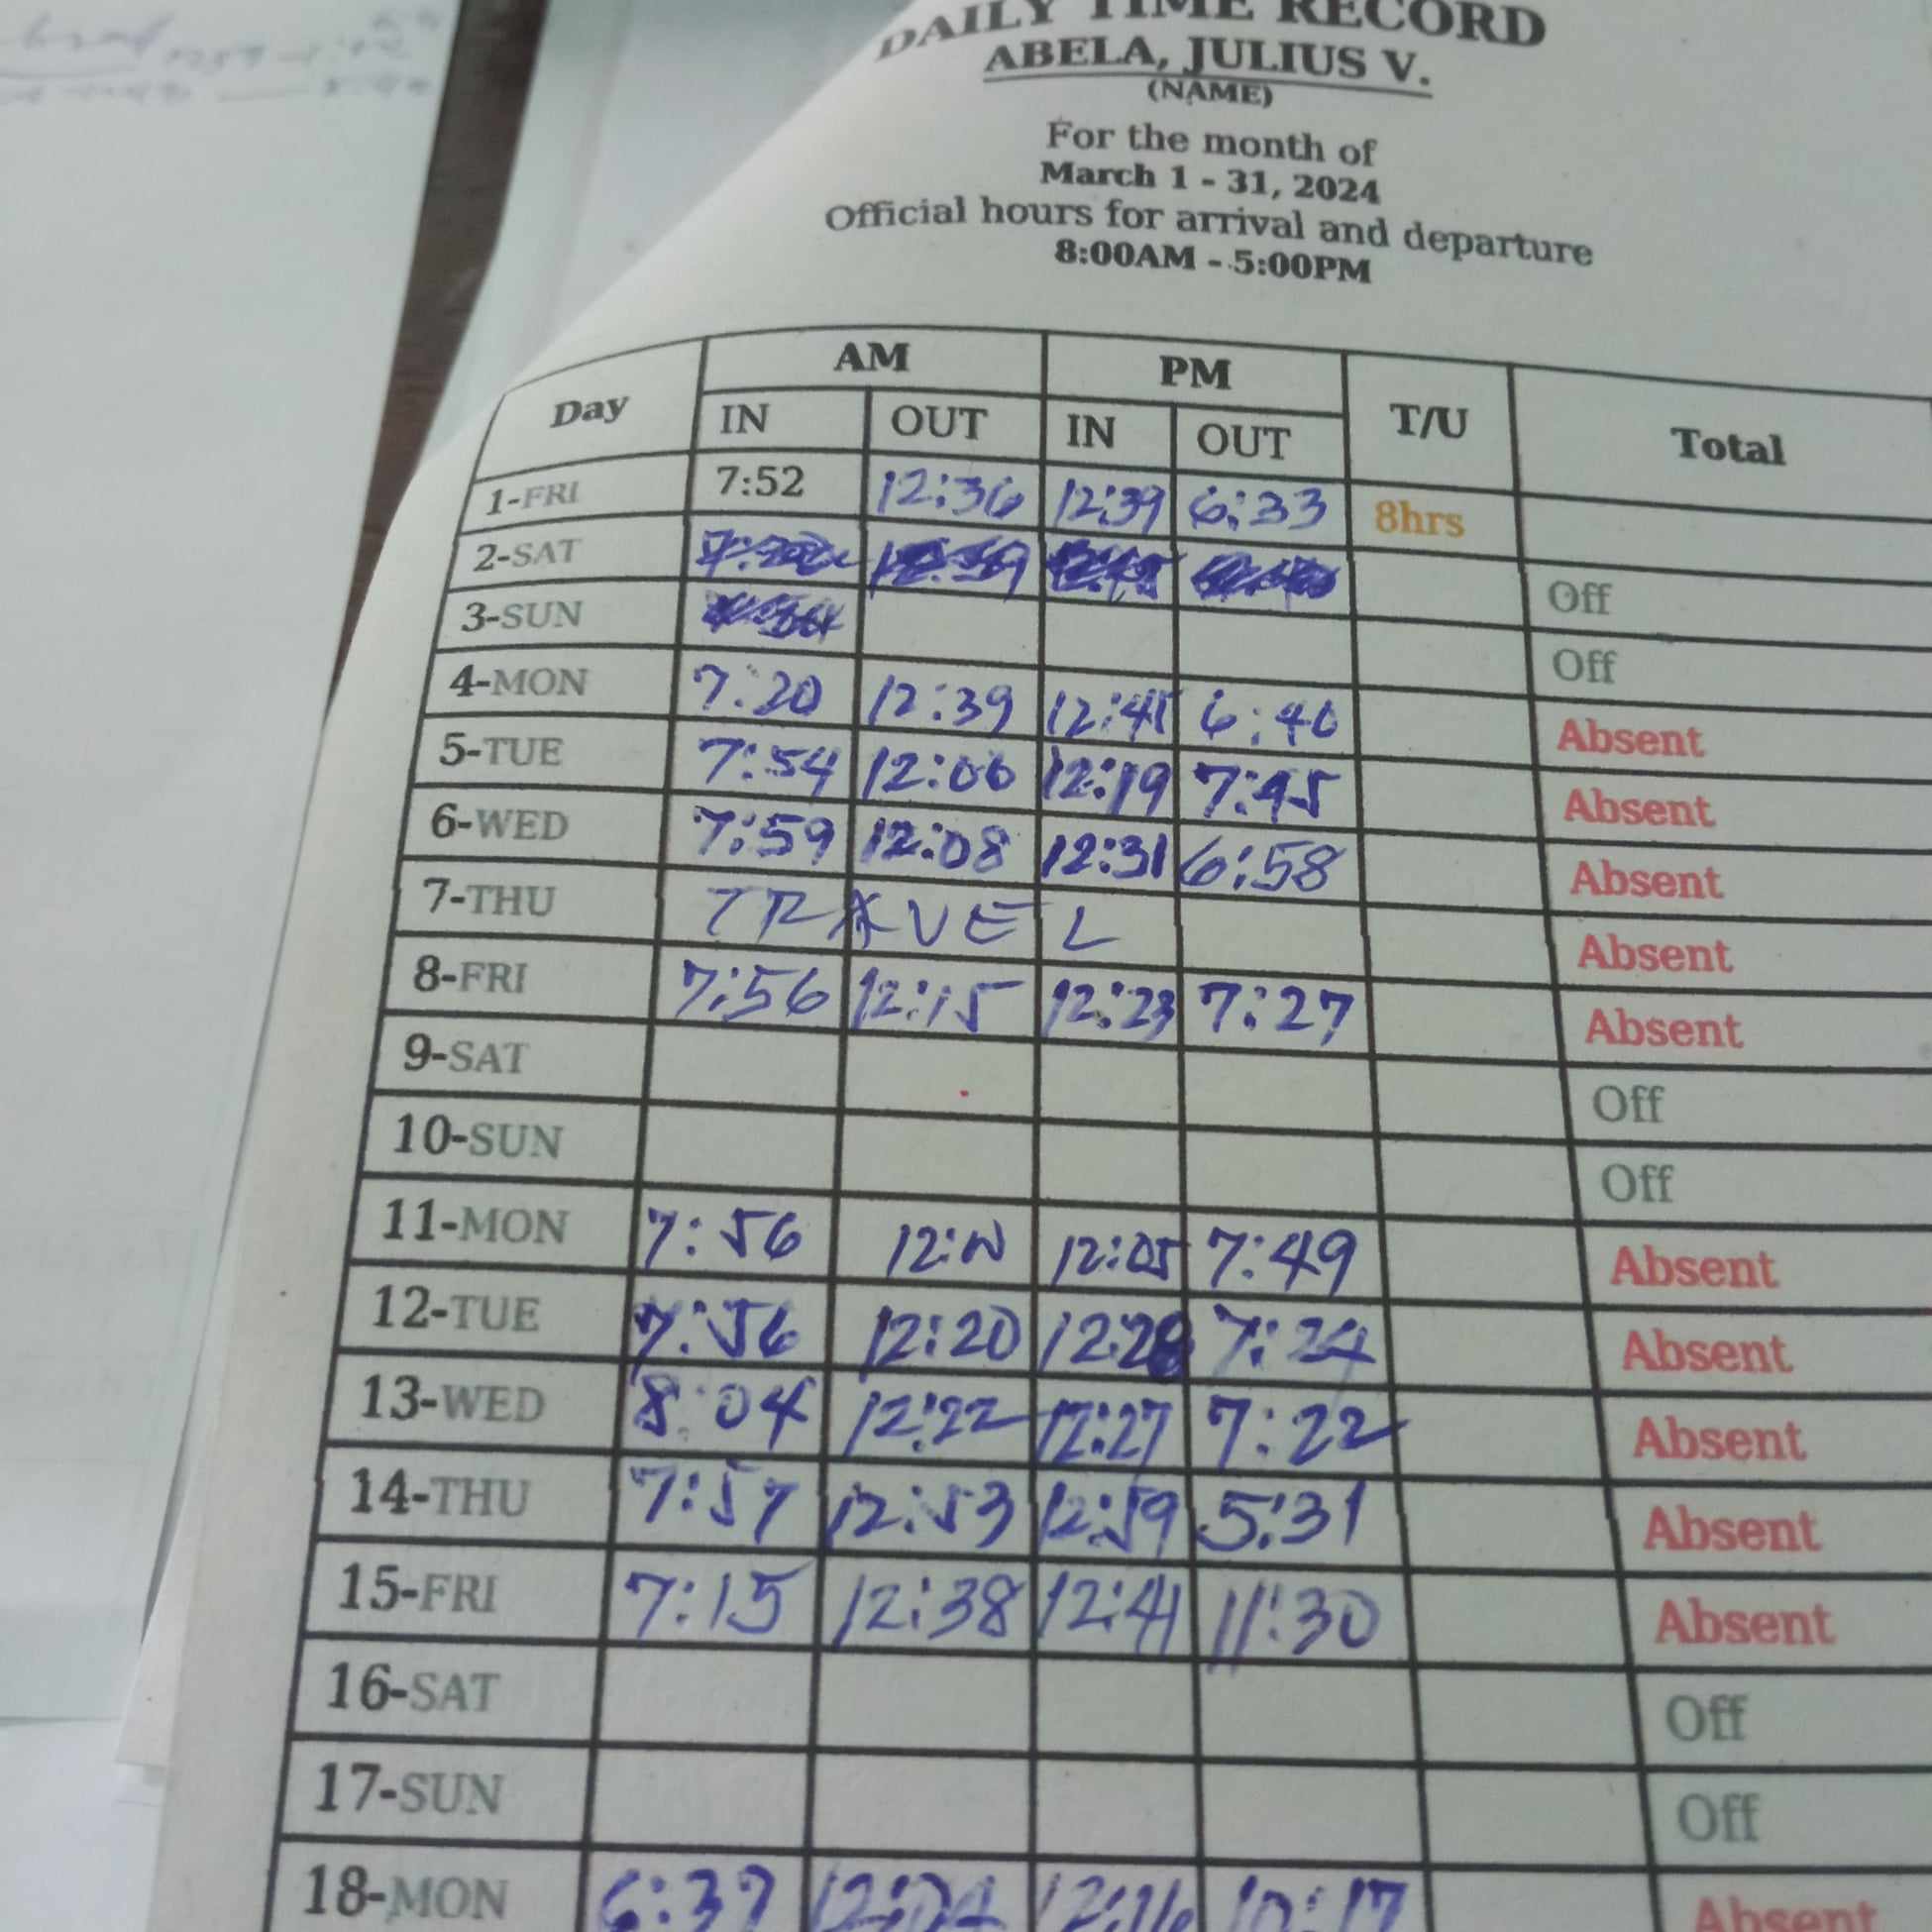 DAILY TIME RECORD
ABELA, JULIUS V.
(NAME)
For the month of
March 1 - 31, 2024
Official hours for arrival and departure
8:00AM - 5:00PM
Day AM PM T/U Total
IN OUT IN OUT
1-FRI 7:52 12:36 12:39 6:33 8hrs
2-SAT Off
3-SUN Off
4-MON 7:20 12:39 12:41 6:40 Absent
5-TUE 7:54 12:06 12:19 7:45 Absent
6-WED 7:59 12:08 12:31 6:58 Absent
7-THU TRAVEL Absent
8-FRI 7:56 12:15 12:23 7:27 Absent
9-SAT Off
10-SUN Off
11-MON 7:56 12:05 7:49 Absent
12-TUE 7:56 12:20 7:24 Absent
13-WED 8:04 12:22 12:27 7:22 Absent
14-THU 7:57 12:53 12:59 5:31 Absent
15-FRI 7:15 12:38 12:41 11:30 Absent
16-SAT Off
17-SUN Off
18-MON 6:37 12:16 10:17 Absent